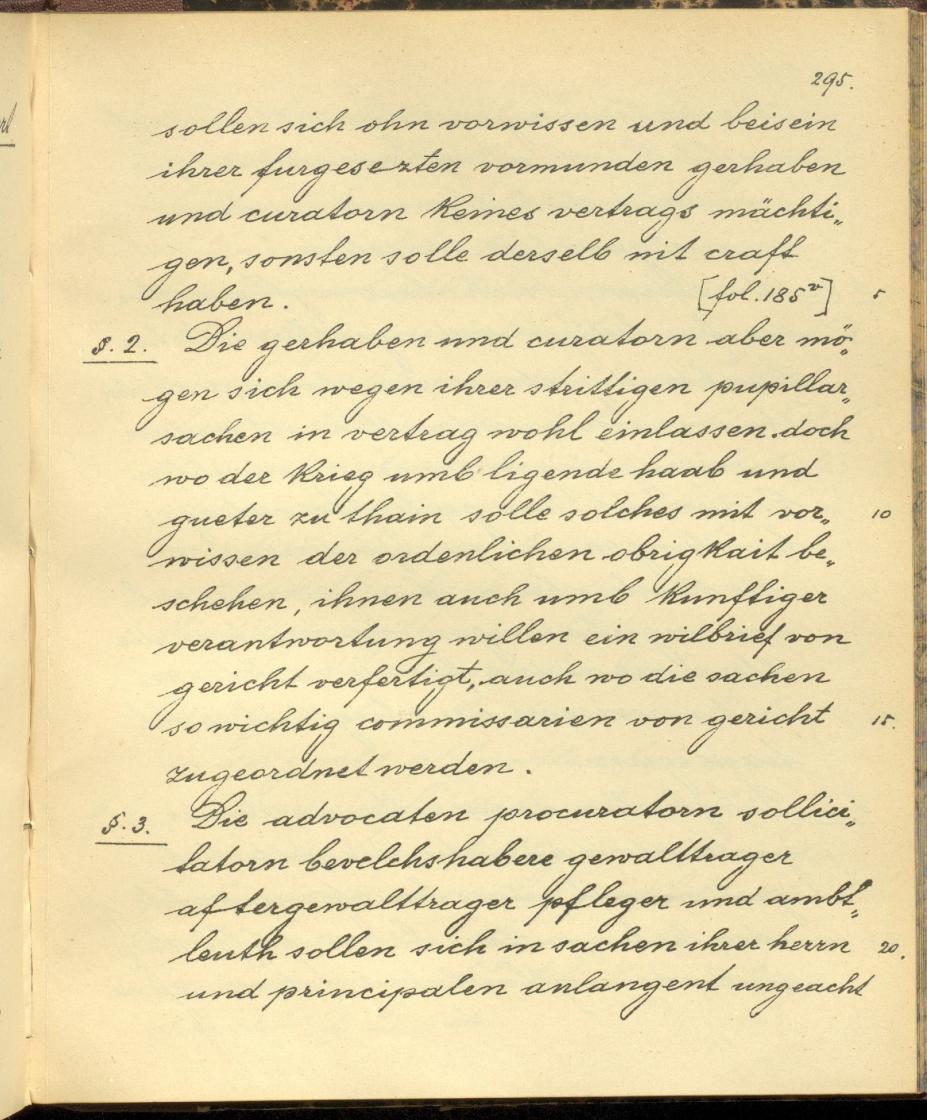 295.
sollen sich ohn vorwissen und beisein
ihrer furgesezten vormunden gerhaben
und curatorn keines vertrags mächti„
gen, sonsten solle derselb nit craft
haben. [fol. 185v] 5
§. 2. Die gerhaben und curatorn aber mö„
gen sich wegen ihrer strittigen pupillar„
sachen in vertrag wohl einlassen. doch
wo der krieg umb ligende haab und
gueter zu thain solle solches mit vor„ 10
wissen der ordenlichen obrigkait be„
schehen, ihnen auch umb kunftiger
verantwortung willen ein wilbrief von
gericht verfertigt, auch wo die sachen
so wichtig commissarien von gericht 15.
zugeordnet werden.
§. 3. Die advocaten procuratorn sollici„
tatorn bevelchshabere gewalttrager
aftergewalttrager pfleger und ambt„
leuth sollen sich in sachen ihrer herrn 20.
und principalen anlangent ungeacht